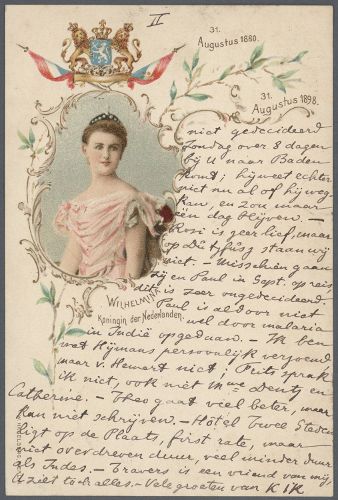 II
31.
Augustus 1880.
31.
Augustus 1898.
niet gedecideerd
Zondag over 8 dagen
bij U naar Baden
komt; hij weet echter
niet nu al of hij weg
kan, en zou maar
een dag blijven. —
Rosi is zeer lief, maar
op Dutzfusz staan wij
niet. — Misschien gaan
zij en Paul in Sept. op reis,
dit is zeer ongedecideerd.
WILHELMINA
Koningin der Nederlanden.
Paul is al door niet
wel door malaria
in Indië opgedaan. — Ik ben
met Hijmans persoonlijk verzoend
maar v. Hemert niet; Frits sprak
ik niet, ook niet Mwe Dentz en
Catherine. — Theo gaat veel beter, maar
kan niet schrijven. — Hôtel Twee Steden
ligt op de Plaats, first rate, maar
niet overdreven duur, veel minder duur
als Indes. — Travers is een vriend van mij
U ziet toch alles. — Vele groeten van K